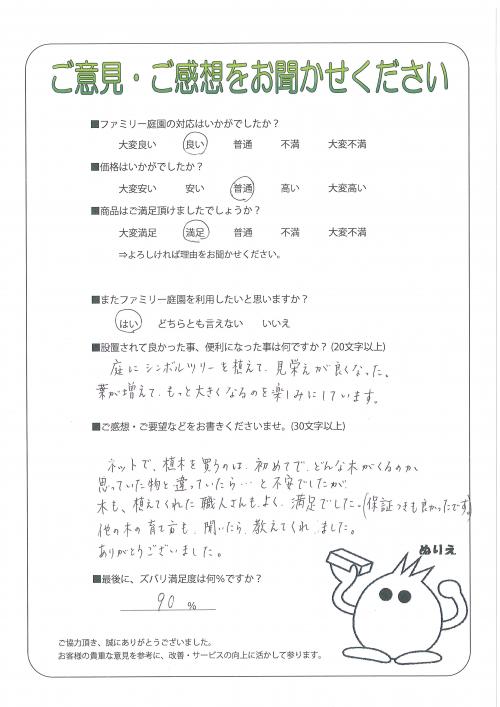 ご意見・ご感想をお聞かせください
■ファミリー庭園の対応はいかがでしたか？
大変良い 良い 普通 不満 大変不満
■価格はいかがでしたか？
大変安い 安い 普通 高い 大変高い
■商品はご満足頂けましたでしょうか？
大変満足 満足 普通 不満 大変不満
⇒よろしければ理由をお聞かせください。
■またファミリー庭園を利用したいと思いますか？
はい どちらとも言えない いいえ
■設置されて良かった事、便利になった事は何ですか？ (20文字以上)
庭にシンボルツリーを植えて、見栄えが良くなった。
葉が増えて、もっと大きくなるのを楽しみにしています。
■ご感想・ご要望などをお書きくださいませ。(30文字以上)
ネットで、植木を買うのは、初めてで、どんな木がくるのか、
思っていた物と違っていたら…と不安でしたが
木も、植えてくれた職人さんも、よく、満足でした。(保証つきも良かったです)
他の木の育て方も、聞いたら、教えてくれました。
ありがとうございました。
ぬりえ
■最後に、ズバリ満足度は何％ですか？
90 %
ご協力頂き、誠にありがとうございました。
お客様の貴重な意見を参考に、改善・サービスの向上に活かして参ります。